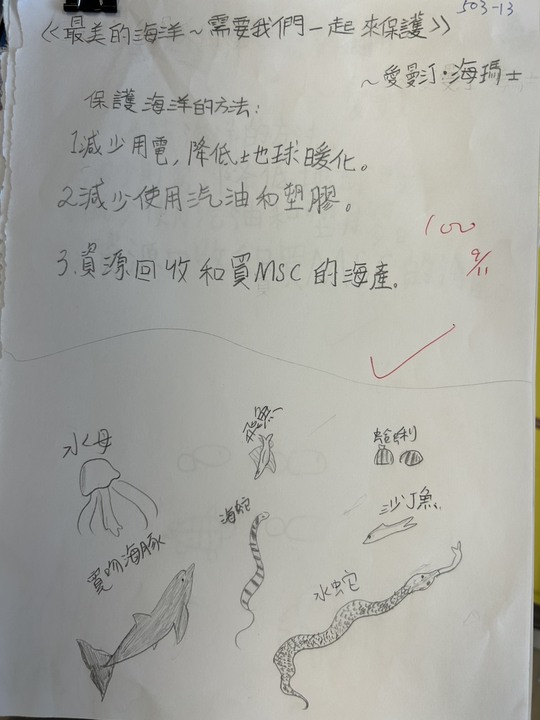 503-13
《最美的海洋～需要我們一起來保護》
～愛曼汀·海瑪士
保護海洋的方法：
1.減少用電，降低土地球暖化。
2.減少使用汽油和塑膠。
3.資源回收和買MSC的海產。
100
9/11
水母
蛤蜊
海蛇
沙丁魚
寬吻海豚
水蛇